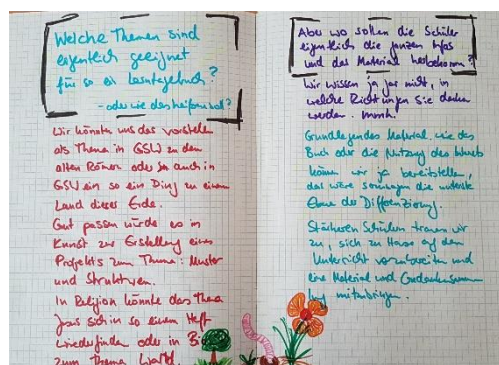 Welche Themen sind
eigentlich geeignet
für so ein Lerntagebuch?
- oder wie das heißen soll?
Wir könnten uns das vorstellen
als Thema in GSW zu den
alten Römern oder so auch in
GSW ein so ein Ding zu einem
Land dieser Erde.
Gut passen würde es in
Kunst zur Erstellung eines
Projekts zum Thema: Muster
und Strukturen.
In Religion könnte das Thema
sich in so einem Heft
wiederfinden oder in Bio
zum Thema Wald.
Aber wo sollen die Schüler
eigentlich die ganzen Infos
und das Material herbekommen?
Wir wissen ja gar nicht, in
welche Richtungen sie denken
werden. mmh.
Grundlegendes Material wie das
Buch oder die Nutzung des
können wir ja bereitstellen,
das wäre sozusagen die unterste
Ebene der Differenzierung.
Stärkeren Schülern trauen wir
zu, sich zu Hause auf den
Unterricht vorzubereiten und
eine Material und Gedankensamm
lung mitzubringen.